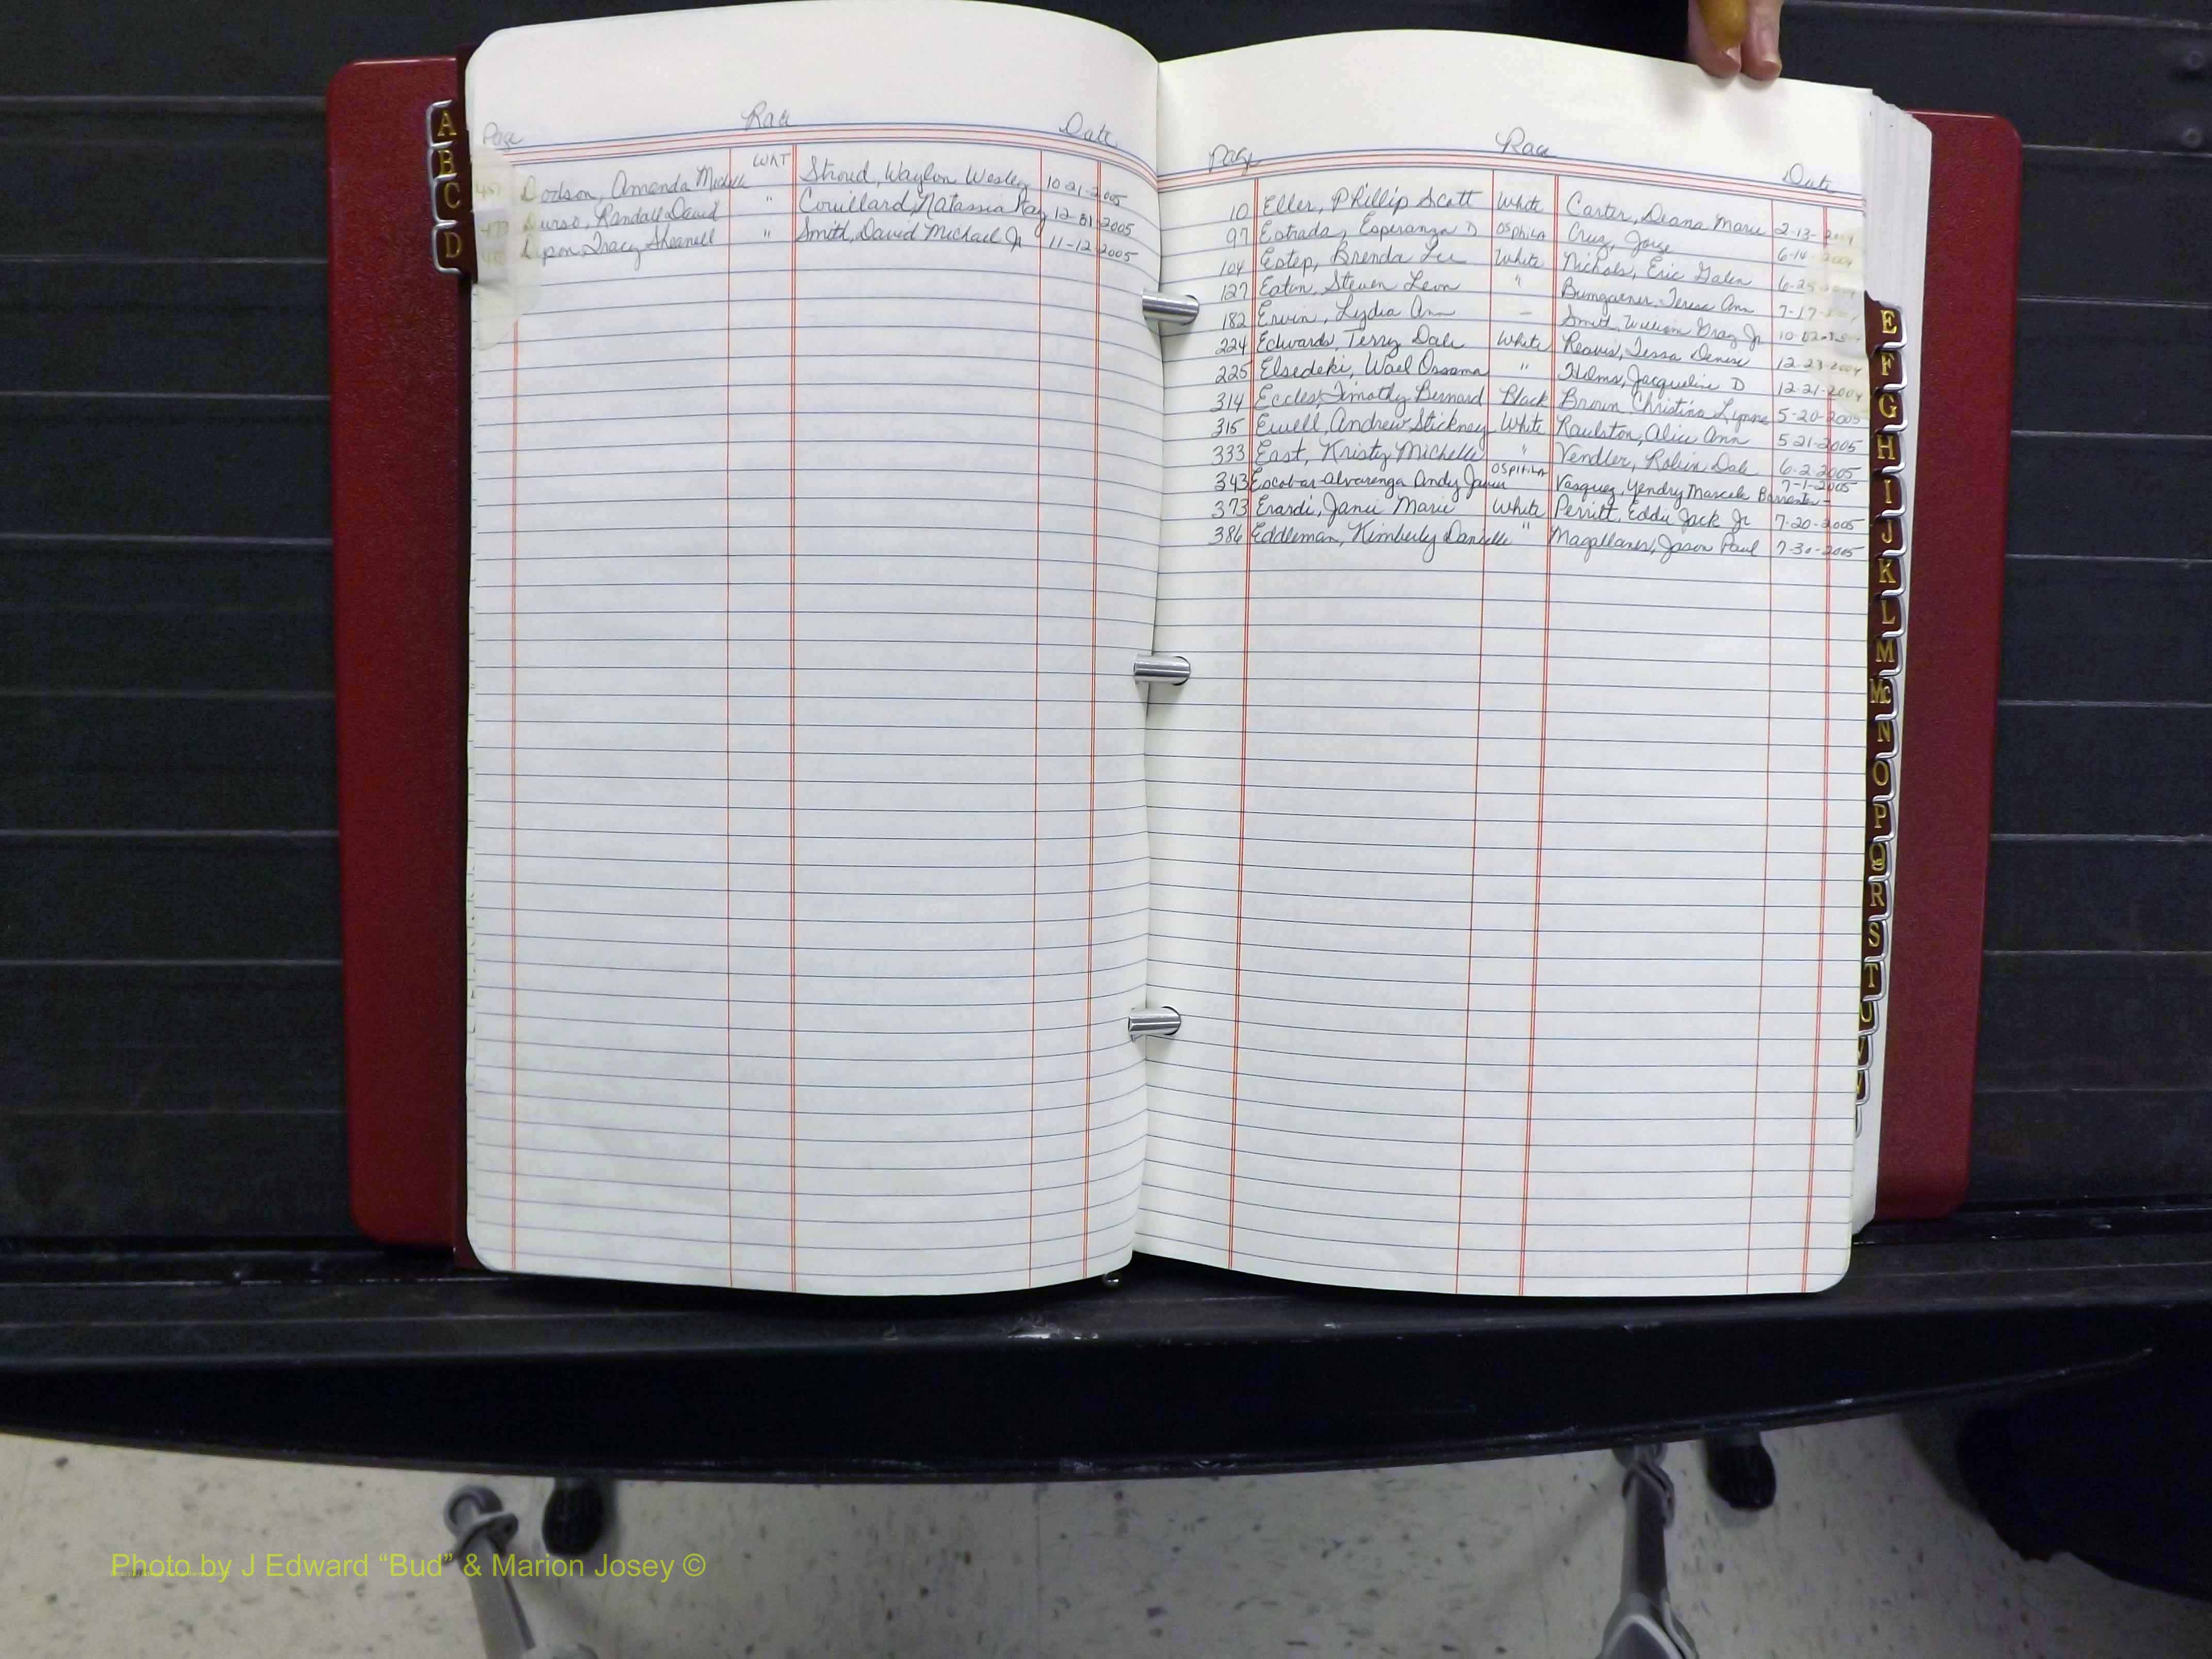 A
B
C
D
Page Race Date
Dodson, Amanda Michelle WHT Stroud, Waylon Wesley 10-21-2005
Durso, Randall David " Couillard, Natassia Kay 12-31-2005
Tracy Sheanell " Smith, David Michael Jr 11-12-2005
Page Race Date
10 Eller, Phillip Scott White Carter, Deana Marie 2-13-
97 Estrada, Esperanza D Cruz, Jorge 6-14-2004
104 Estep, Brenda Lee White Nichols, Eric Galen 6-25-
127 Eaton, Steven Leon " Bumgarner, Teresa Ann 7-17-
182 Ervin, Lydia Ann - Smith, William Gray Jr 10-02-
224 Edwards, Terry Dale White Reavis, Tessa Denise 12-23-2004
225 Elsedeki, Wael Ossama " Holms, Jacqueline D 12-21-2004
314 Eccles, Timothy Bernard Black Brown, Christina Lynne 5-20-2005
315 Ewell, Andrew Stickney White Raulston, Alice Ann 5-21-2005
333 East, Kristy Michelle " Vendler, Robin Dale 6-2-2005
343 Escobar-Alvarenga Andy Javier Vasquez, Yendry Marcela 7-1-2005
373 Erardi, Janie Marie White Perritt, Eddie Jack Jr 7-20-2005
386 Eddleman, Kimberly Danielle " Magallanes, Jason Paul 7-30-2005
E
F
G
H
I
J
K
L
M
Mc
N
O
P
Q
R
S
T
U
V
W
Photo by J Edward “Bud” & Marion Josey ©